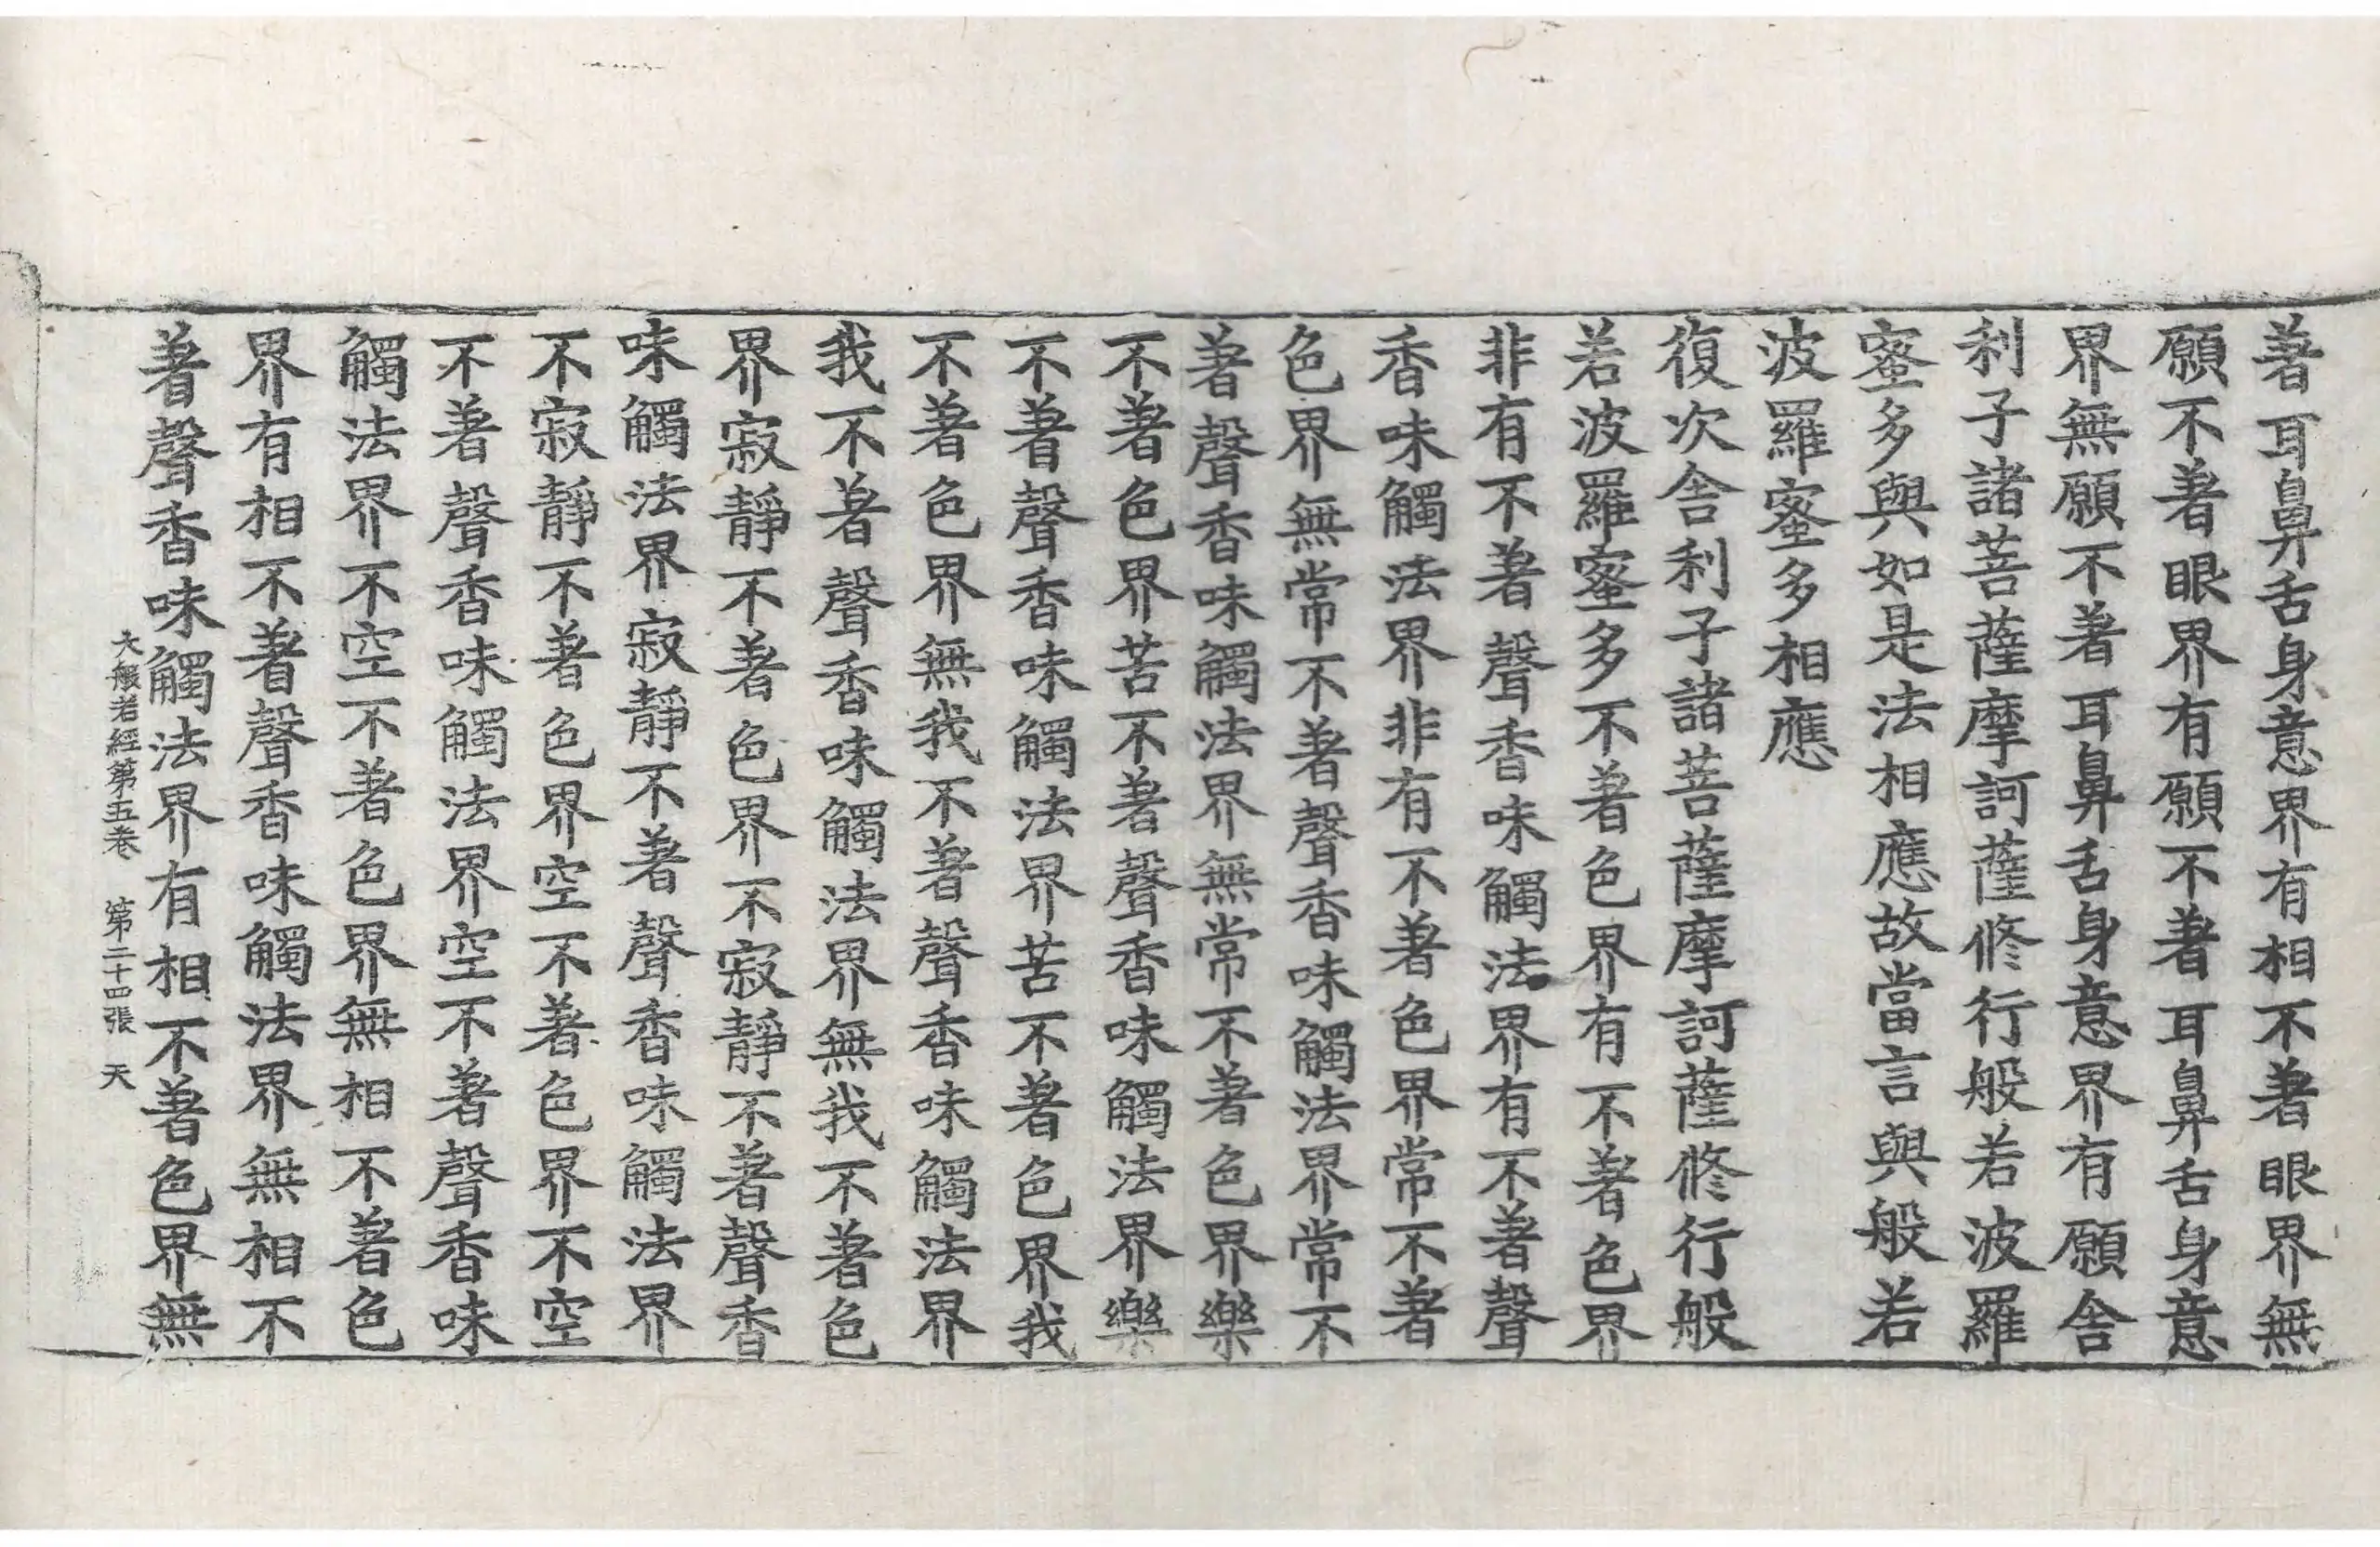 著耳鼻舌身意界有相不著眼界無
願不著眼界有願不著耳鼻舌身意
界無願不著耳鼻舌身意界有願舍
利子諸菩薩摩訶薩修行般若波羅
蜜多與如是法相應故當言與般若
波羅蜜多相應
復次舍利子諸菩薩摩訶薩修行般
若波羅蜜多不著色界有不著色界
非有不著聲香味觸法界有不著聲
香味觸法界非有不著色界常不著
色界無常不著聲香味觸法界常不
著聲香味觸法界無常不著色界樂
不著色界苦不著聲香味觸法界樂
不著聲香味觸法界苦不著色界我
不著色界無我不著聲香味觸法界
我不著聲香味觸法界無我不著色
界寂靜不著色界不寂靜不著聲香
味觸法界寂靜不著聲香味觸法界
不寂靜不著色界空不著色界不空
不著聲香味觸法界空不著聲香味
觸法界不空不著色界無相不著色
界有相不著聲香味觸法界無相不
著聲香味觸法界有相不著色界無
大般若經第五卷 第二十四張 天